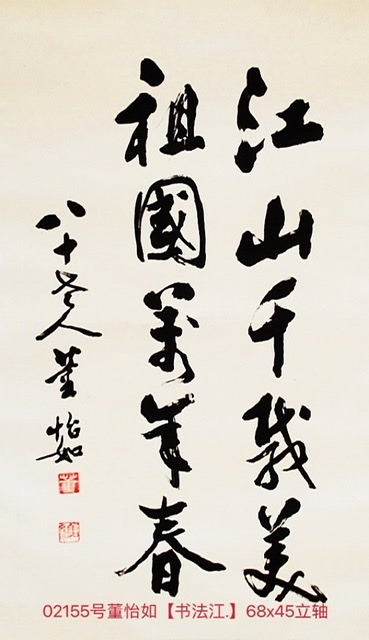 江山千載美
祖國萬年春
八十老人董怡如
02155号董怡如【书法江.】68x45立轴